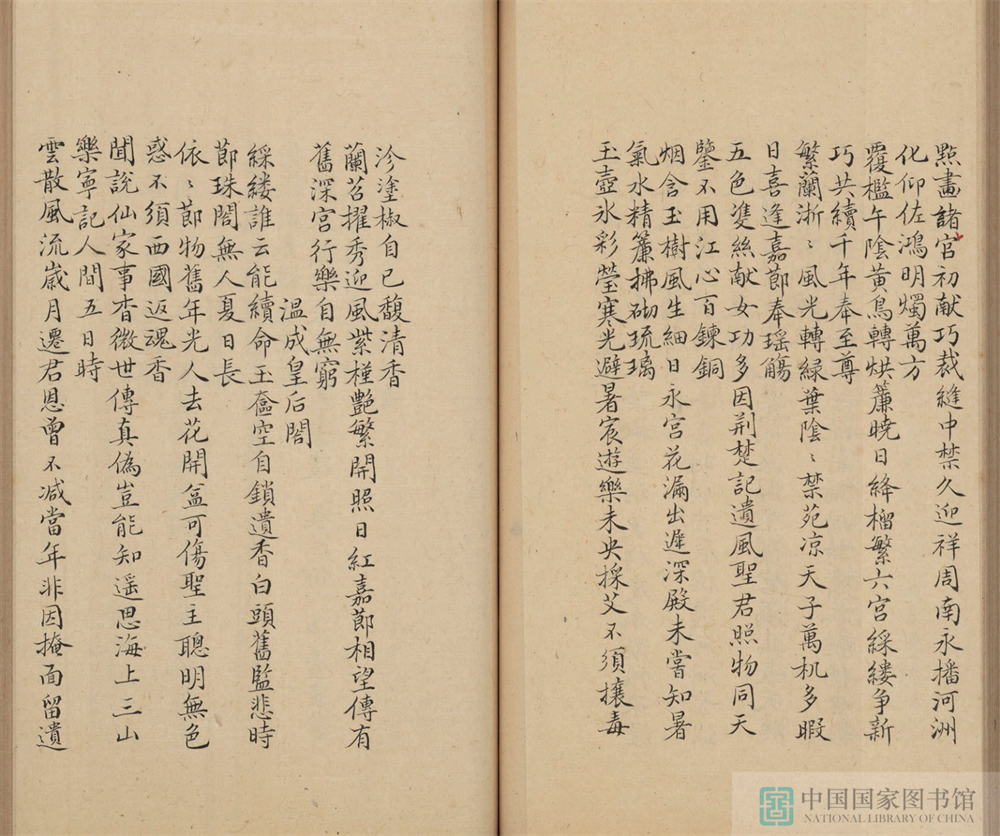 點畫諸官初献巧裁縫中禁久迎祥周南永播河洲
化仰佐鴻明燭萬方
覆檻午陰黄鳥轉烘簾曉日絳榴繁六宫綵縷争新
巧共續千年奉至尊
繁蘭浙〻風光轉緑葉陰〻禁苑凉天子萬机多暇
日喜逢嘉節奉瑶觴
五色雙絲献女功多因荆楚記遺風聖君照物同天
鑒不用江心百鍊銅
烟含玉樹風生細日永宫花漏出遲深殿未嘗知暑
氣水精簾拂砌琉璃
玉壺氷彩瑩寒光避暑宸遊樂未央採艾不須攘毒
沴塗椒自已馥清香
蘭苕擢秀迎風紫槿艷繁開照日紅嘉節相望傳有
舊深宫行樂自無窮
温成皇后閤
綵縷誰云能續命玉奩空自鎖遺香白頭舊監悲時
節珠閤無人夏日長
依〻節物舊年光人去花開益可傷聖主聰明無色
惑不須西國返魂香
聞説仙家事杳微世傳真偽豈能知遥思海上三山
樂寧記人間五日時
雲散風流歲月遷君恩曾不减當年非因掩面留遺
中国国家图书馆
NATIONAL LIBRARY OF CHINA